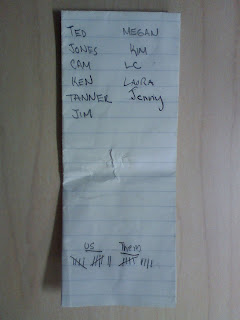 TED MEGAN
JONES KIM
CAM LC
KEN LAURA
TANNER Jenny
JIM
US Them